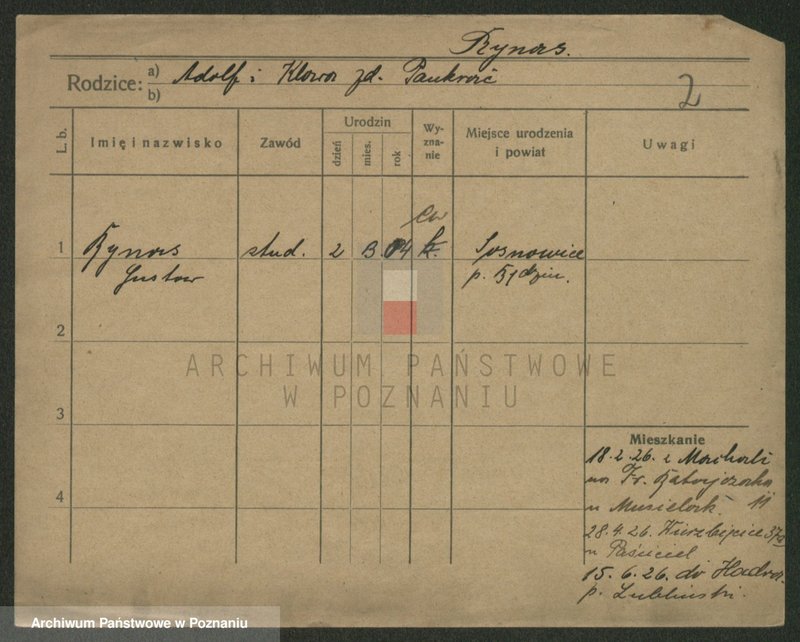 Rynas.
Rodzice: a) Adolf i Klara zd.
b)
2
L. b.
Imię i nazwisko
Zawód
Urodzin
dzień
mies.
rok
Wy-
zna-
nie
Miejsce urodzenia
i powiat
Uwagi
ew
1
Rynas stud. 2 3. 04 k. Sosnowice
Gustaw p. Będzin.
2
ARCHIWUM PAŃSTWOWE
W POZNANIU
3
Mieszkanie
18.2.26. z
na Fr. Ratajczaka
11
4
u
28.4.26. 37a
u
15.6.26. do
p. Lubliński.
Archiwum Państwowe w Poznaniu